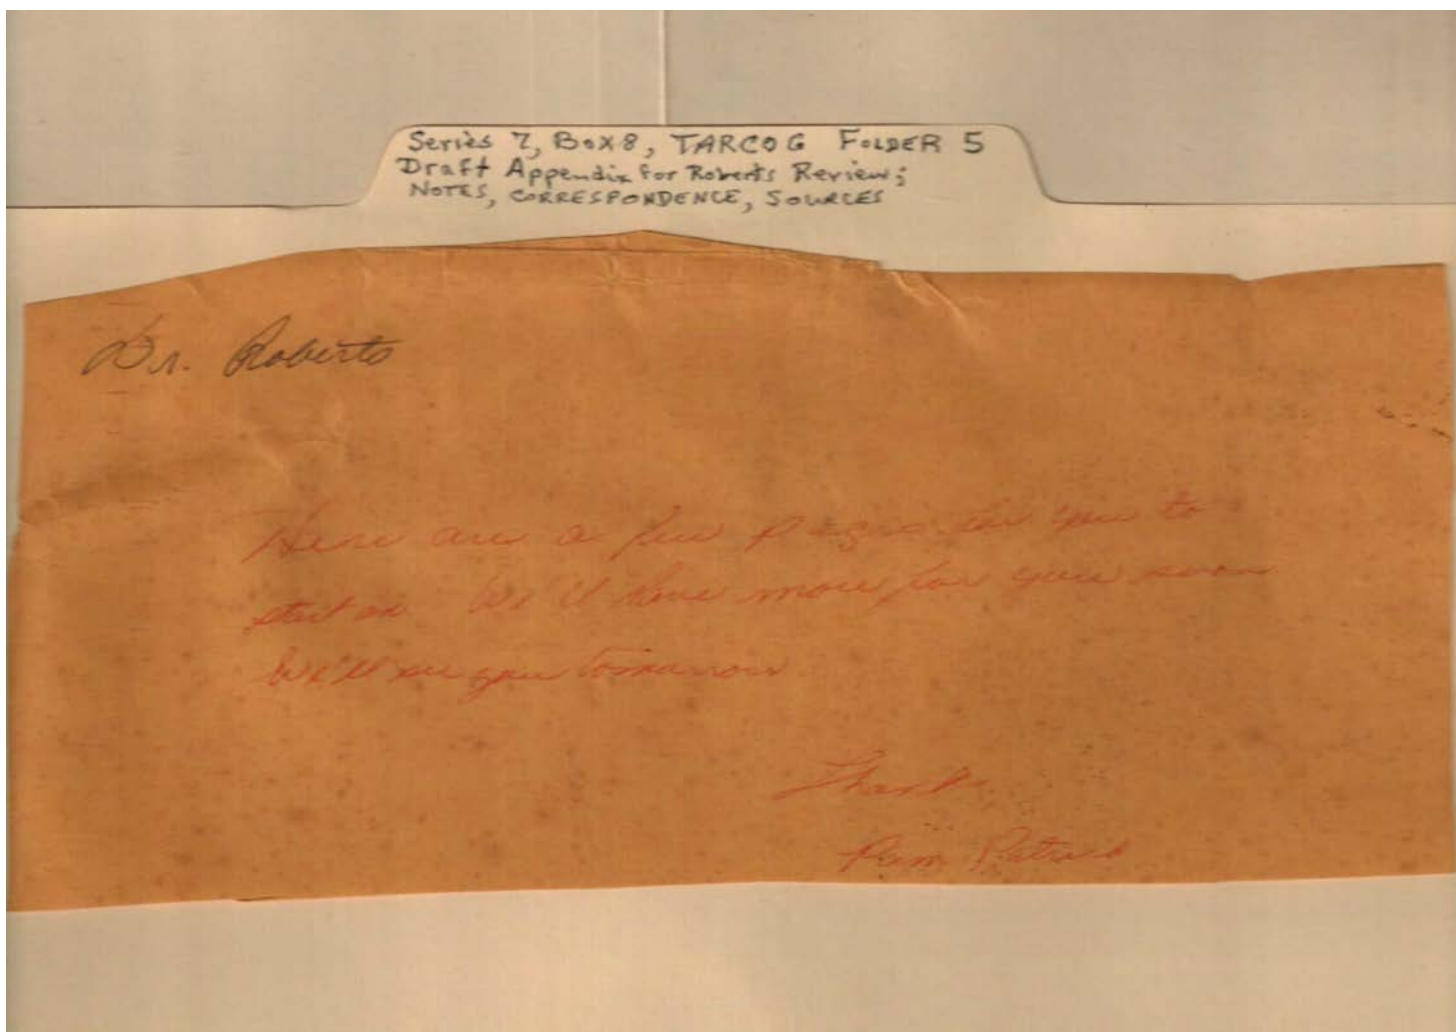 Series 7, Box 8, TARCOG FOLDER 5
Draft Appendix for Roberts Review;
NOTES, CORRESPONDENCE, SOURCES
Dr. Roberts
Here are a few pages for you to
start on We'll have more for you soon
We'll see you tomorrow
Thanks,
Pam